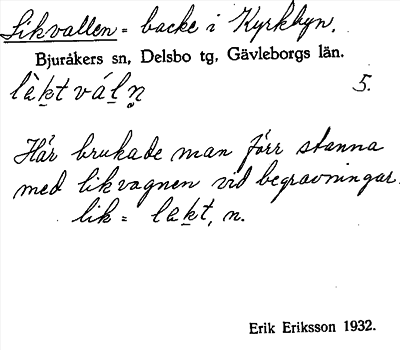 Likvallen = backe i Kyrkbyn.
Bjuråkers sn, Delsbo tg, Gävleborgs län.
là̱kt váḻn̥ 5.
Här brukade man förr stanna
med likvagnen vid begravningar.
lik = la̱kt, n.
Erik Eriksson 1932.